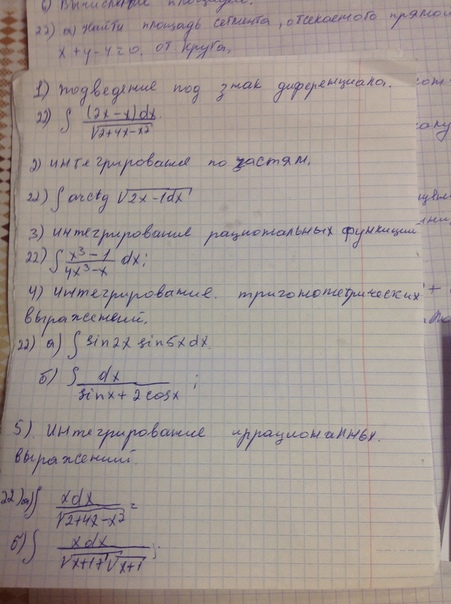 6) Вычисление площадей.
22) а) Найти площадь сегмента, отсекаемого прямой
x + y - 4 = 0, от круга,
1) подведение под знак диференциала.
22) ∫ (2x-x)dx / √2+4x-x²
2) интегрирование по частям.
22) ∫ arctg √2x-1dx
3) Интегрирование рациональных функций
22) ∫ x³-1 / 4x³-x dx;
4) Интегрирование тригонометрических
выражений.
22) а) ∫ sin2x sin5x dx.
б) ∫ dx / sinx + 2cosx ;
5) Интегрирование иррациональных.
выражений.
22) а) ∫ xdx / √2+4x-x² =
б) ∫ xdx / √x+1+√x+1 ;